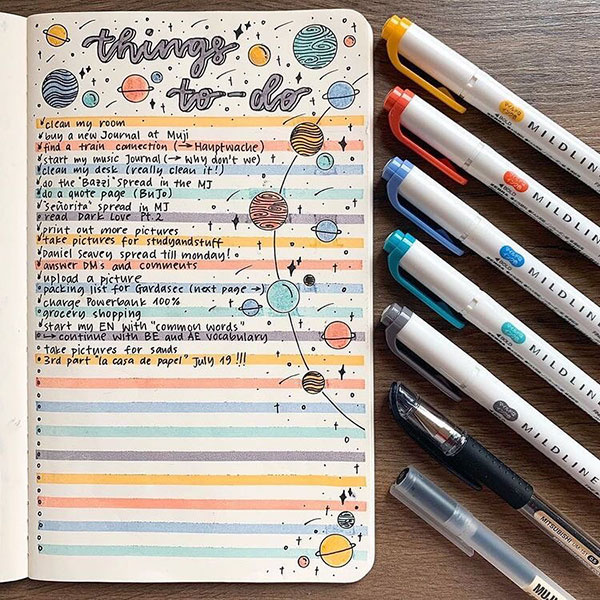 things
to-do
clean my room
buy a new Journal at Muji
find a train connection (→ Hauptwache)
start my music Journal (→ Why don't we)
clean my desk (really clean it!)
do the "Bazzi" spread in the MJ
do a quote page (BuJo)
"Señorita" spread in MJ
read Dark Love Pt. 2
print out more pictures
take pictures for studyandstuff
Daniel Seavey spread till monday!
answer DMs and comments
upload a picture
packing list for Gardasee (next page →)
charge Powerbank 100%
grocery shopping
start my EN with "common words"
↳ continue with BE and AE vocabulary
take pictures for sands
3rd part "la casa de papel" July 19 !!!
MILDLINE
MILDLINE
MILDLINE
MILDLINE
MILDLINE
MITSUBISHI
MUJI